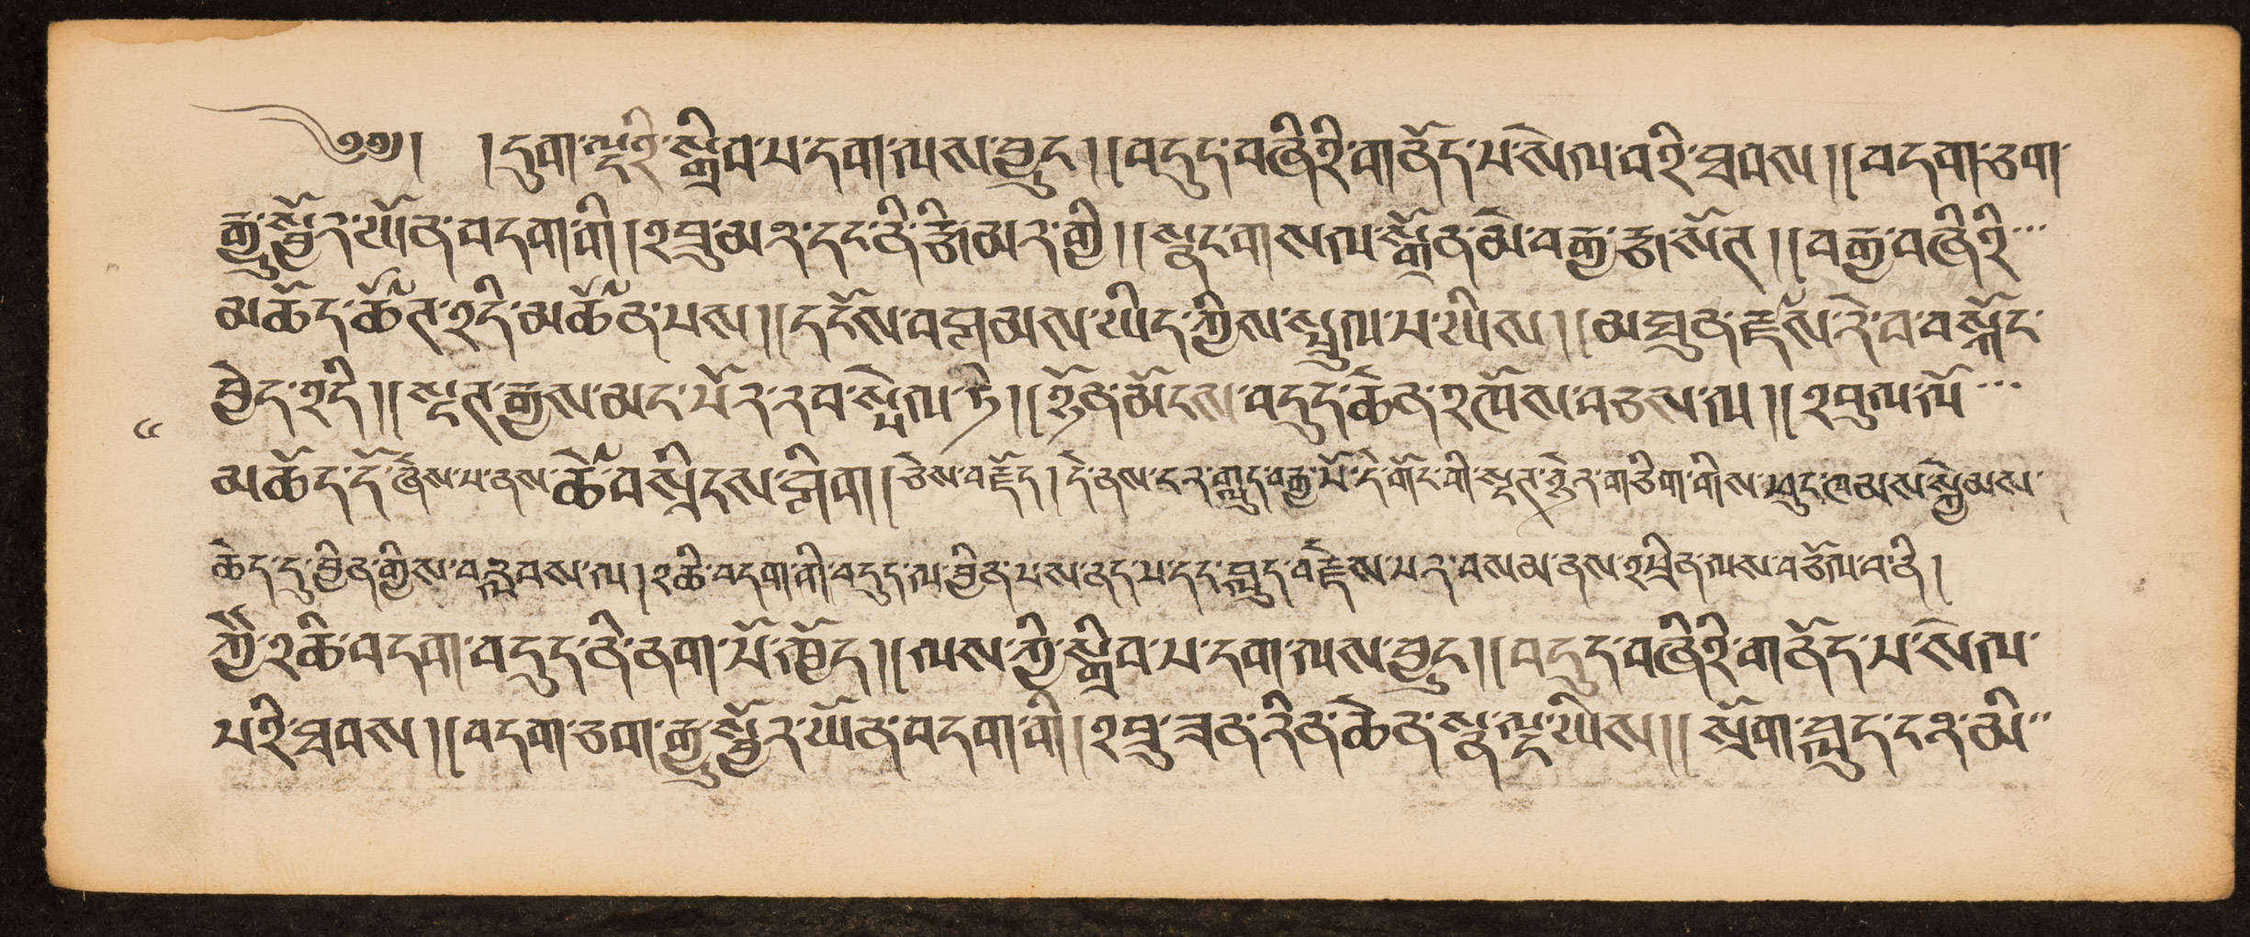 ༄༅། །དུག་ལྔའི་སྒྲིབ་པ་དག་ལས་བྱུང༌། །བདུད་བཞིའི་གནོད་པ་སེལ་བའི་གྲབས། །བདག་ཅག་
རྒྱུ་སྦྱོར་ཡོན་བདག་གི །འབྲུ་མར་དང་ནི་རྩི་མར་གྱི། །སྣང་གསལ་སྒྲོན་མེ་བརྒྱ་རྩ་སོན། །བརྒྱ་བཞིའི་
མཆོད་ཚོན་འདི་མཚོན་པས། །དངོས་བཤམས་ཡིད་ཀྱིས་སྤྲུལ་པ་ཡིས། །མགྲོན་རྫོས་རེ་བ་བསྐོང་
བྱེད་འདི། །སྔན་རྒྱས་མང་པོར་རབ་སྤེལ་ཏེ། །ཉོན་མོངས་བདུད་ཆེན་འཁོས་བཅས་ལ། །འབུལ་ལོ་
མཆོད་དོ་ཞེས་པ་ནས་ཚེ་བསྲིངས་ཤིག །ཅེས་བརྗོད། དེ་ནས་ངར་གླུད་བརྒྱ་པོ་དེ་གོང་གི་སྔན་ཉེར་གཅིག་གིས་ཕུང་ཁམས་སྐྱེམས་
ཆེད་དུ་བྱིན་གྱིས་བརླབས་ལ། འཆི་བདག་གི་བདུད་ལ་བྱིན་པས་ནད་པ་དང་གླུད་བརྗེས་པར་བསམ་ནས་འཕྲིན་ལས་བཅོལ་བ་ནི།
ཀྱེ་འཆི་བདག་བདུད་ནི་ནག་པོ་ཁྱོད། །ལས་ཀྱི་སྒྲིབ་པ་དག་ལས་བྱུང༌། །བདུད་བཞིའི་གནོད་པ་སེལ་
པའི་གྲབས། །བདག་ཅག་རྒྱུ་སྦྱོར་ཡོན་བདག་གི །འབྲུ་ཟན་རིན་ཆེན་སྣ་ལྔ་ཡིས། །སྲོག་གླུད་ངར་མི་